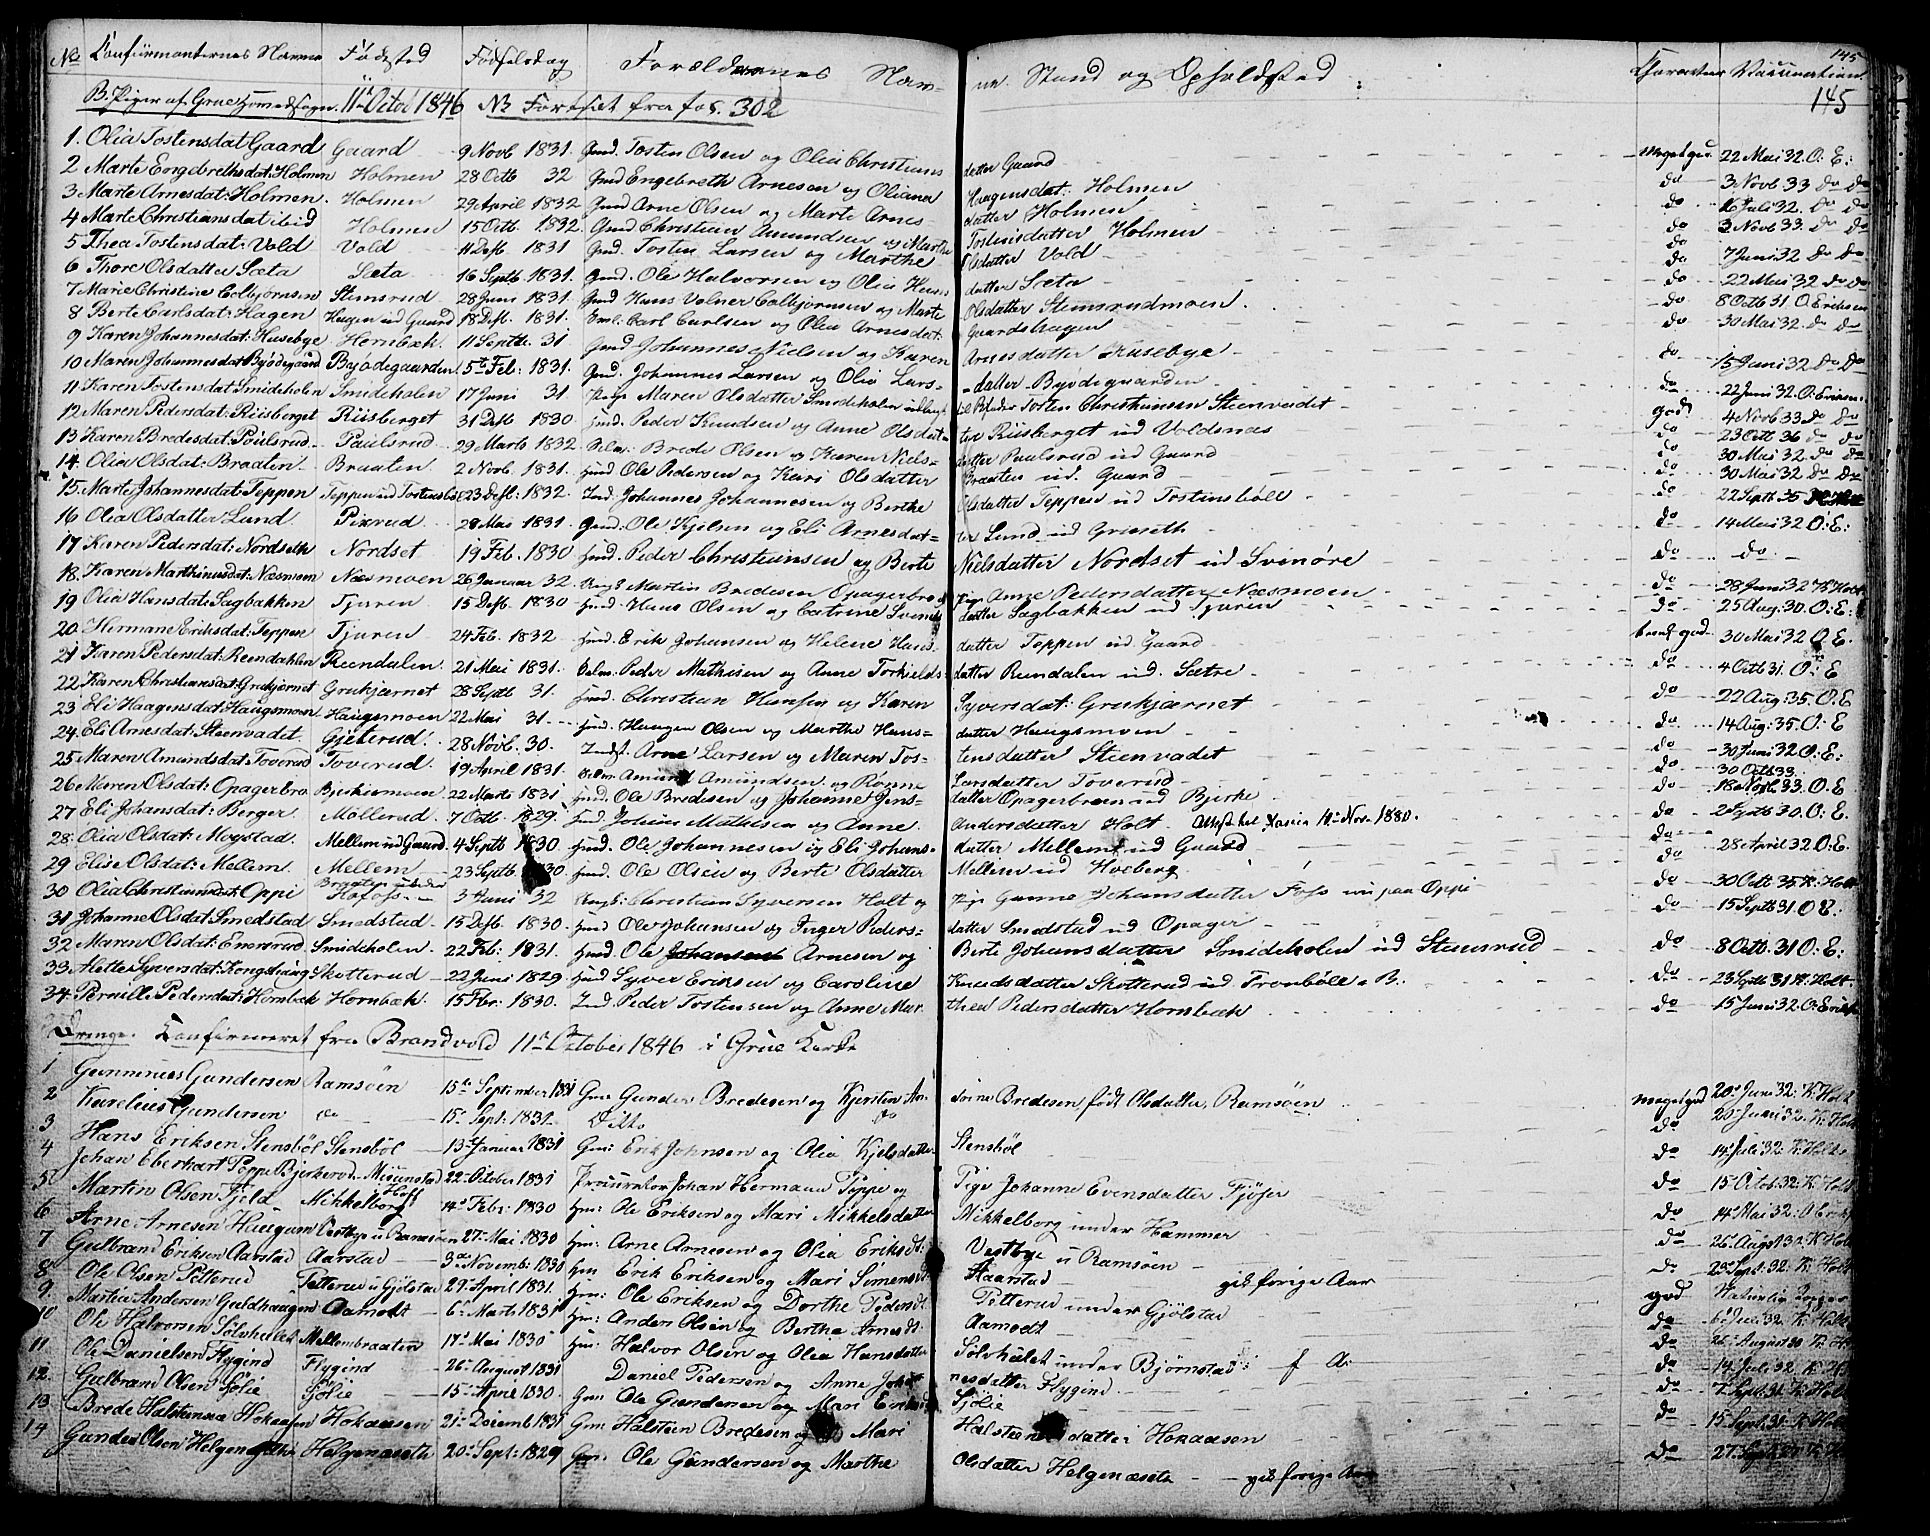 145
No Confirmanternes Navne Fødested Fødselsdag Forældrenes Navne Stand og Opholdsted Characteer Vaccination
B. Piger af Grue Hovedsogn 11te Octor 1846 No Fortsat fra fol. 302 145
1. Olia Tostensdat Gaard Gaard 9 Novb 1831. Gmd. Tosten Olsen og Olia Christians datter Gaard meget gd. 22 Mai 32 O. E:
2 Marte Engebrethsdat: Holmen Holmen 28 Octb 32 Gmd Engebreth Arnesen og Oliana Haagensdat: Holmen do 3 Novb 33 do do
3 Marte Arnesdat: Holmen. Holmen 29 April 1832 Gmd Arne Olsen og Marte Arnes- datter Holmen do 16 Juli 32. do do
4 Marte Christiansdat ibid Holmen 15 Octb. 1832. Gmd Christian Amundsen og Marthe Tostensdatter Holmen do 3 Novb 33. do do
5 Thea Tostensdat: Vold Vold 11 Desb 1831 Gmd. Tosten Larsen og Marthe Olsdatter Vold do 7 Juni 32 do do
6 Thore Olsdatter Sæta Sæta 16 Septb. 1831. Gmd. Ole Halvorsen og Olia Hans datter Sæta do 22 Mai 32 do do
7 Marie Christine Colbjørnsen Stemsrud 28 Juni 1831. Gmd Hans Volner Colbjørnsen og Marte Olsdatter Stemsrudmoen. do 8 Octb 31 O. Eriksen
8 Berte Carlsdat: Hagen Hagen ud Gaard 18 Desb. 1831. Carl Carlsen og Olia Arnesdat: Gaardshagen do 30 Mai 32. do do
9 Karen Johannesdat: Husebye Hernbæk. 11 Septb. 31 Gmd Johannes Nielsen og Karen Arnesdatter Husebye do 15 Juni 32 do do
10 Maren Johannesdat Byødegaard Byødegaarden 5te Feb: 1831. Gmd. Johannes Larsen og Olia Lars- datter Byødegaarden do 22 Juni 32. O. Eriksen
11 Karen Tostensdat: Smideholen Smideholen 17 Juni 31 Pige Maren Olsdatter Smideholen udlagt til Bfader Tosten Christiansen Steenvadet god 4 Novb 33 do do
12 Maren Pedersdat: Riisberget Riisberget 31 Desb 1830 Peder Knudsen og Anne Olsdat- ter Riisberget ud Voldsnæs do 23 Octb 36 do do
13 Karen Bredesdat: Paulsrud Paulsrud 29 Marts 1832 Brede Olsen og Karen Niels- datter Paulsrud ud Gaard do 30 Mai 32 do do
14. Olia Olsdat: Braaten Braaten 2 Novb. 1831. Hmd Ole Pedersen og Kari Olsdatter Braaten ud. Gaard do 30 Mai 32 do do
15. Marte Johannesdat: Teppen Teppen ud Tostensbøl 23 Desb. 1832. Ind. Johannes Johannesen og Berthe Olsdatter Teppen ud Tostensbøll do 22 Septb 35
16 Olia Olsdatter Lund 28 Mai 1831. Gmd. Ole Kjelsen og Eli Arnesdat= ter Lund ud Grueseth do 14 Mai 32 O: E:
17 Karen Pedersdat: Nordseth Nordset 19 Feb. 1830 Hmd. Peder Christiansen og Berte Nielsdatter Nordset ud Svenøre do do
18. Karen Marthinusdat: Næsmoen Næsmoen 26 Januar 32. Martin Bredesen Opagerbro og Pige Anne Pedersdatter Næsmoen do 28 Juni 32 K. Holt
19 Olia Hansdat: Sagbakken Tjuren 15 Desb. 1830 Hmd. Hans Olsen og Catrine Svends datter Sagbakken ud Tjuren do 25 Aug. 30. O: E:
20. Hermane Eriksdat: Teppen Tjuren 24 Feb. 1832 Hmd. Erik Johansen og Helene Hans- datter Teppen ud Gaard god 30 Mai 32 O. E.
21 Karen Pedersdat: Reendahlen Reendalen. 21 Mai 1831. Peder Mathisen og Anne Torkields- datter Rendalen ud. Sætre do 4 Octb 31. O: E
22 Karen Christiansdat: Grukjernet Grukjærnet 28 Septb 31. Hmd. Christian Hansen og Karen Syversdat: Grukjærnet do 22 Aug. 35. O. E
23 Eli Haagensdat: Haugsmoen Haugsmoen 22 Mai 31 Hmd. Haagen Olsen og Marthe Hans= datter Haugsmoen do 14 Aug: 35. O: E
24. Eli Arnesdat: Steenvadet. Gjeterud. 28 Novb. 30. Indst. Arne Larsen og Maren Tos- tensdatter Steenvadet do 30 Juni 32 O: E:
25 Maren Amundsdat: Toverud Toverud. 19 April 1831. Amund Amundsen og Rønne Larsdatter Toverud do 30 Octb 33.
26 Maren Olsdat: Opagerbro Bjerkemoen 22 Marts 1831 Hmd. Ole Bredesen og Johanne Jens- datter Opagerbroen ud Bjerke do 18 Novb. 33. O. E
27 Eli Johansdat: Berger Møllerud 7 Octb. 1829. Johan Mathisen og Anne Andersdatter Holt. 12te Nov. 1880. do 2 Septb 30. O: E.
28. Olia Olsdat: Mogstad. Mellem ud Gaard 4 Septb 1830 Hmd. Ole Johannesen og Eli Johans- datter Mellem ud Gaard do 28 April 32 O. E.
29 Elise Olsdat: Mellem. Mellem 23 Septb. 1830 Hmd. Ole Olsen og Berte Olsdatter Mellem ud Hoeberg do
30 Olia Christiansdat: Oppi Braaten under Hofoss 3 Juni 32 Christian Syversen Holt og Pige Gunne Johansdatter Foss nu paa Oppi do 30 Octb 35 K. Holt
31 Johanne Olsdat: Smedstad Smedstad 15 Desb. 1830. Hmd Ole Johansen og Inger Peders= datter Smedstad ud Opager do 15 Septb 31 O E:
32. Maren Olsdat: Emersrud Smideholen. 22 Feb: 1831. Hmd. Ole Johansen Arnesen og Berte Johansdatter Smideholen ud Stemsrud do 8 Octb. 31 O: E:
33. Alette Syversdat: Kongshaug Skotterud 22 Juni 1829 Hmd Syver Eriksen og Caroline Knudsdatter Skotterud ud Frambølle B. do 23 Septb 31 K. Holt.
34. Pernille Pedersdat: Hornbæk Hornbæk. 15 Fbr: 1830. Ind. Peder Tostensen og Anne Mar- thea Pedersdatter Hornbæk do 15 Juni 32. O: Eriks
Drenge. Confirmeret fra Brandvold 11te October 1846 i Grue Kirke
1 Gunnerius Gundersen Ramsøen 15de September 1831 Gmr Gunder Bredesen og Kjersten An- drine Bredesen født Olsdatter, Ramsøen meget god 20de Juni 32: K. Holt
2 Karelius Gundersen do 15de Sept: 1831. Ditto do do 20 Juni 32. K: Holt
3 Hans Eriksen Stensbøl Stensbøl 13de Januar 1831 Gmr: Erik Johnsen og Olia Kjelsdatter Stensbøl do 14de Juli 32: K. Holt
4 Johan Eberhart Poppe Bjerkerod Misunstad 22de October 1831 Procurator Johan Hermann Poppe og Pige Johanne Evensdatter Fjøser do 15de Octob: 32: K: Holt
5 Martin Olsen Fjeld Mikkelborg 14de Febr: 1830 Hmr: Ole Eriksen og Mari Mikkelsdatter Mikkelborg under Hammer do 14de Mai 32: O Eriks
6 Arne Arnesen Haugaen Vestbye u Ramsøen 27de Mai 1830 Hmr: Arne Arnesen og Olia Eriksdt: Vestbye u Ramsøen do 26de August 30: K: Holt
7 Gulbrand Eriksen Aarstad Aarstad 3de Novemb: 1830 Hmr Erik Eriksen og Mari Simensdt Aarstad gik forige Aar do 20de Sept: 32. K: Holt
8 Ole Olsen Petterud Petterud u Gjølstad 29de April 1831. Hmr: Ole Eriksen og Dorthe Pedersdt. Petterud under Gjølstad god
9. Martin Andersen Guldhaugen Aamodt 6te Marts 1831 Hmr: Anders Olsen og Berthe Arnesdt. Aamodt do 6te Juni 32 K: Holt
10 Ole Halvorsen Sølvhulet Mellembraaten 17de Mai 1830 Hmr: Halvor Olsen og Olia Hansdatter Sølvhulet under Bjørnstad f A: do 26de August 30 K: H
11 Ole Danielsen Flygind Flygind 26de August 1831 Daniel Pedersen og Anne Johan- nesdatter Flygind. do 14 Juli 32. K: H
12. Gulbrand Olsen Sjølie Sjølie 15de April 1830. Gmr: Ole Gundersen og Mari Eriksdt Sjølie do 7 Sept. 31 K: Holt
13 Brede Halstensen Hokaasen Hokaasen 21de Decemb 1831 Gmr: Halsteen Bredesen og Mari Halsteensdatter Hokaasen do 15 Sept: 31: K: Holt
14 Gunder Olsen Helgenæseth Helgenæseth 20de Sept: 1829 Gmr: Ole Gundersen og Marthe Olsdatter Helgenæseth gik forige Aar do 27